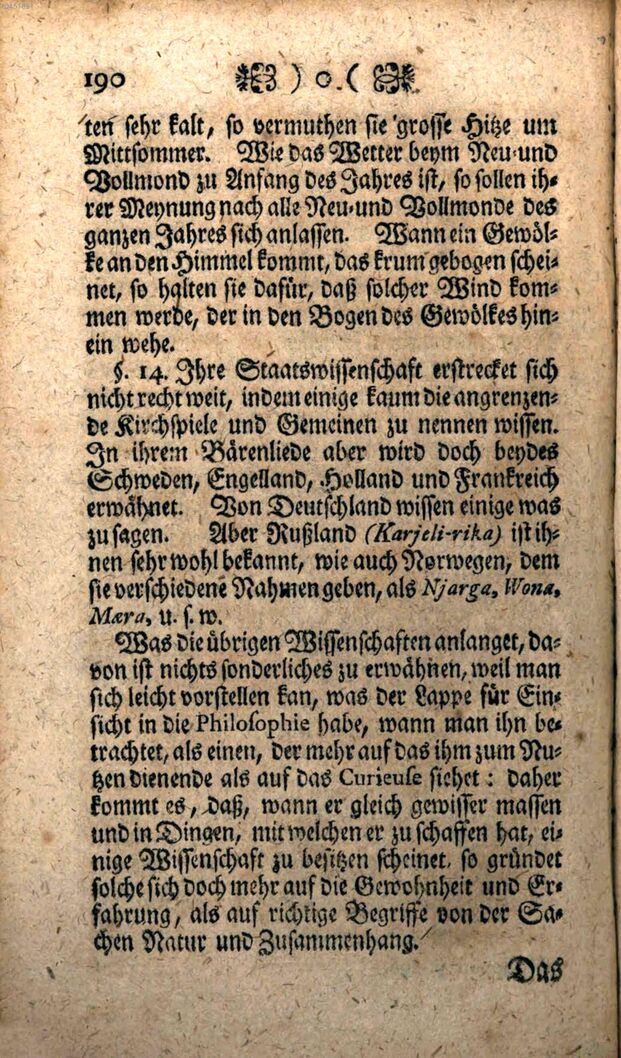 190 ) o. (
ten sehr kalt, so vermuthen sie grosse Hitze um
Mittsommer. Wie das Wetter beym Neu- und
Vollmond zu Anfang des Jahres ist, so sollen ih-
rer Meynung nach alle Neu- und Vollmonde des
ganzen Jahres sich anlassen. Wann ein Gewöl-
ke an den Himmel kommt, das krum gebogen schei-
net, so halten sie dafür, daß solcher Wind kom-
men werde, der in den Bogen des Gewölkes hin-
ein wehe.
§. 14. Ihre Staatswissenschaft erstrecket sich
nicht recht weit, indem einige kaum die angrenzen-
de Kirchspiele und Gemeinen zu nennen wissen.
In ihrem Bärenliede aber wird doch beydes
Schweden, Engelland, Holland und Frankreich
erwähnet. Von Deutschland wissen einige was
zu sagen. Aber Rußland (Karjeli-rika) ist ih-
nen sehr wohl bekannt, wie auch Norwegen, dem
sie verschiedene Nahmen geben, als Njarga, Wona,
Mæra, u. s. w.
Was die übrigen Wissenschaften anlanget, da-
von ist nichts sonderliches zu erwähnen, weil man
sich leicht vorstellen kan, was der Lappe für Ein-
sicht in die Philosophie habe, wann man ihn be-
trachtet, als einen, der mehr auf das ihm zum Nu-
tzen dienende als auf das Curieuse siehet: daher
kommt es, daß, wann er gleich gewisser massen
und in Dingen, mit welchen er zu schaffen hat, ei-
nige Wissenschaft zu besitzen scheinet, so gründet
solche sich doch mehr auf die Gewohnheit und Er-
fahrung, als auf richtige Begriffe von der Sa-
chen Natur und Zusammenhang.
Das